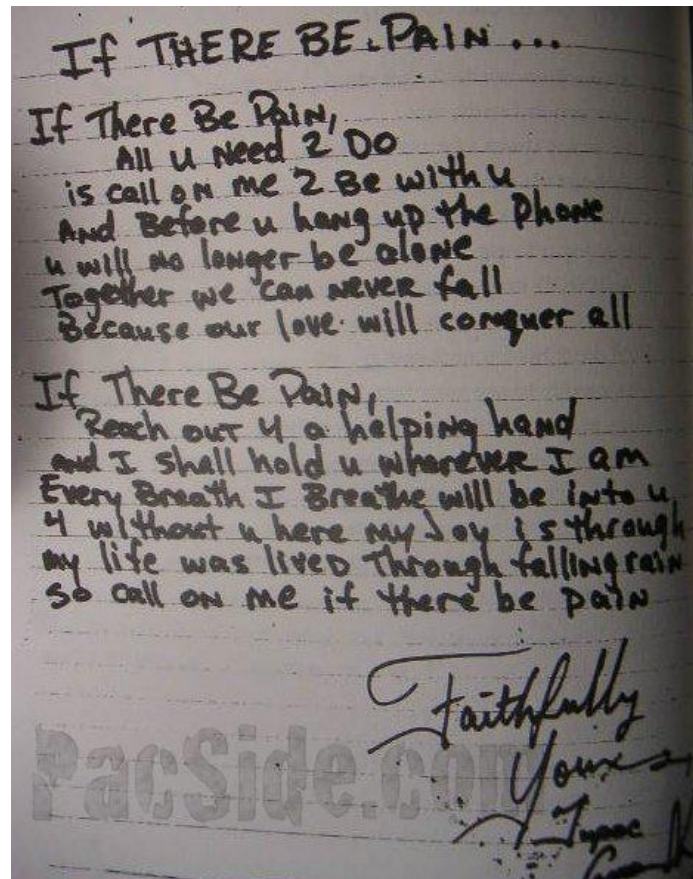 If THERE BE PAIN ...
If There Be Pain,
All u Need 2 Do
is call on me 2 Be with u
And Before u hang up the Phone
u will no longer be alone
Together we can never fall
Because our love will conquer all
If There Be Pain,
Reach out 4 a helping hand
and I shall hold u wherever I am
Every Breath I Breathe will be into u
4 without u here my Joy is through
my life was lived Through falling rain
so call on me if there be pain
Faithfully
Yours
PacSide.com
Tupac